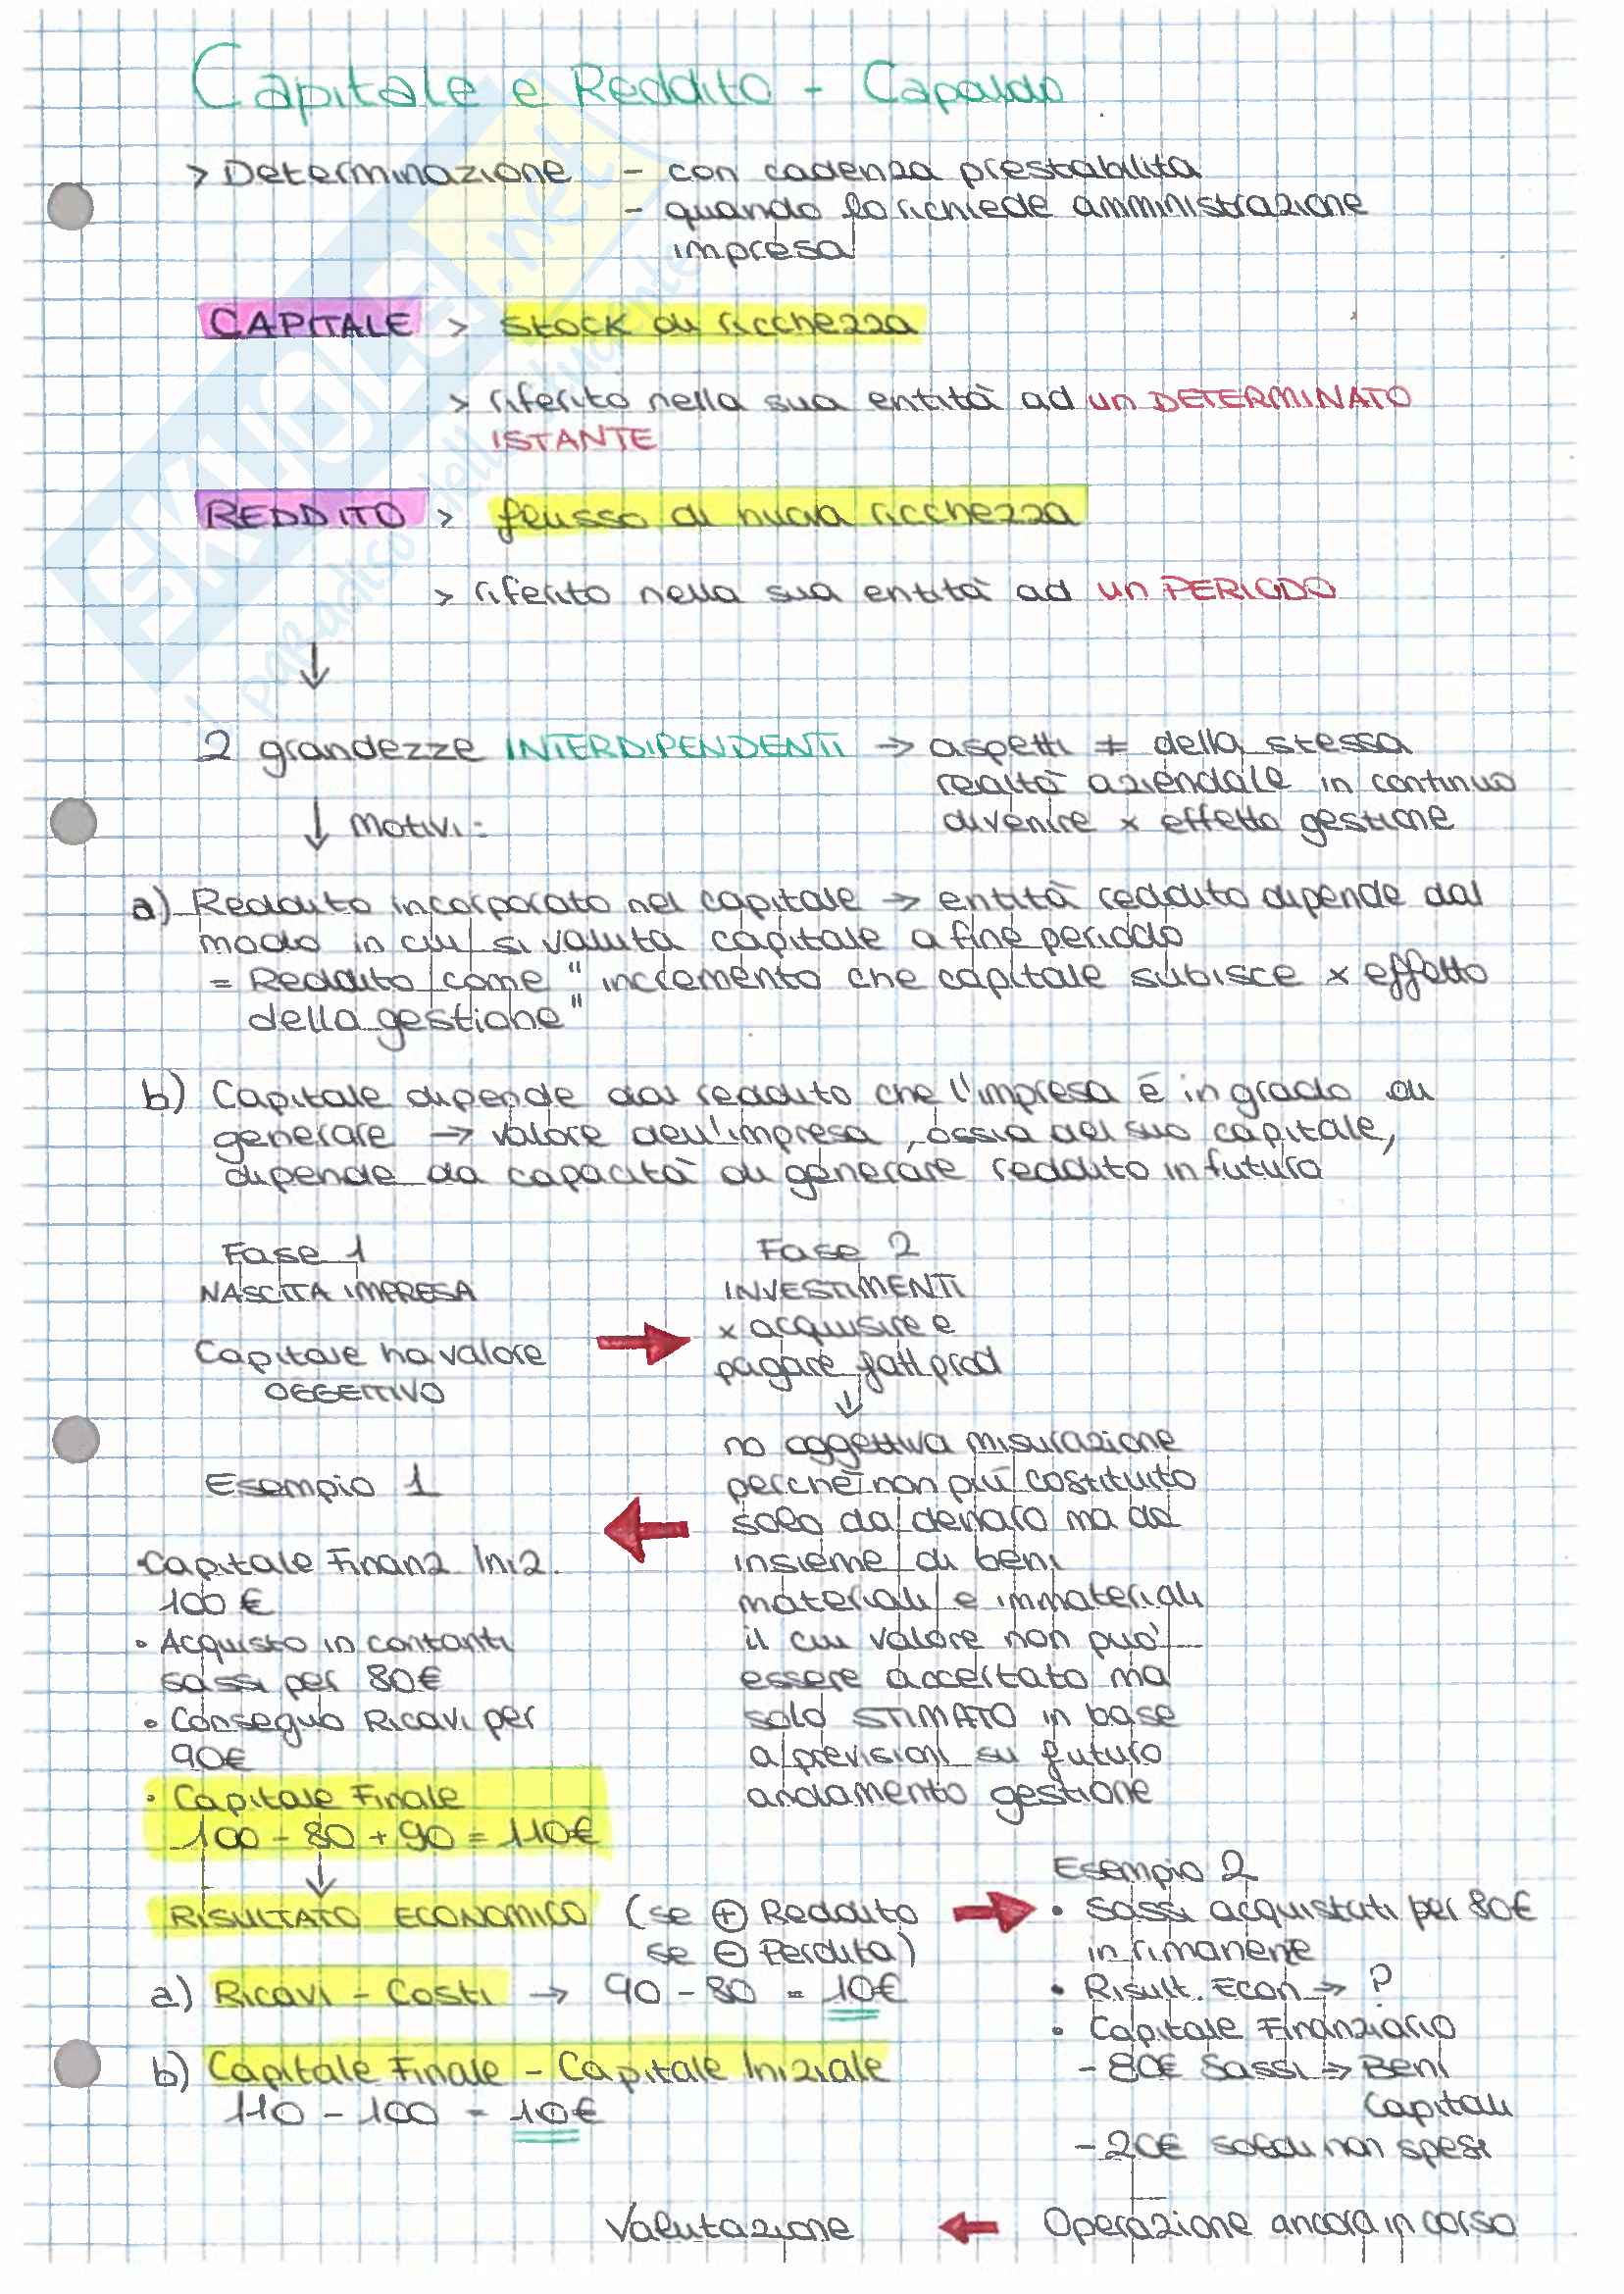 Capitale e Reddito - Capaldo
> Determinazione - con cadenza prestabilita
- quando lo richiede amministrazione
impresa
CAPITALE > stock di ricchezza
> riferito nella sua entità ad un DETERMINATO
ISTANTE
REDDITO > flusso di nuova ricchezza
> riferito nella sua entità ad un PERIODO
↓
2 grandezze INTERDIPENDENTI → aspetti ≠ della stessa
realtà aziendale in continuo
divenire x effetto gestione
↓ Motivi:
a) Reddito incorporato nel capitale → entità reddito dipende dal
modo in cui si valuta capitale a fine periodo
= Reddito come "incremento che capitale subisce x effetto
della gestione"
b) Capitale dipende dal reddito che l'impresa è in grado di
generare → valore dell'impresa, ossia del suo capitale,
dipende da capacità di generare reddito in futuro
Fase 1
NASCITA IMPRESA
Capitale ha valore
OGGETTIVO
Fase 2
INVESTIMENTI
x acquisire e
pagare fatt prod
↓
no oggettiva misurazione
perché non più costituito
solo da denaro ma da
insieme di beni
materiali e immateriali
il cui valore non può
essere accertato ma
solo STIMATO in base
a previsioni su futuro
andamento gestione
Esempio 1
• Capitale Finanz Iniz.
100 €
• Acquisto in contanti
sassi per 80€
• Conseguo Ricavi per
90€
• Capitale Finale
100 - 80 + 90 = 110€
↓
RISULTATO ECONOMICO (se ⊕ Reddito
se ⊖ Perdita)
a) Ricavi - Costi → 90 - 80 = 10€
b) Capitale Finale - Capitale Iniziale
110 - 100 = 10€
Esempio 2
• Sassi acquistati per 80€
in rimanenze
• Risult. Econ → ?
• Capitale Finanziario
- 80€ Sassi → Beni
Capitali
- 20€ soldi non spesi
Operazione ancora in corso
Valutazione
SKUOLA.net